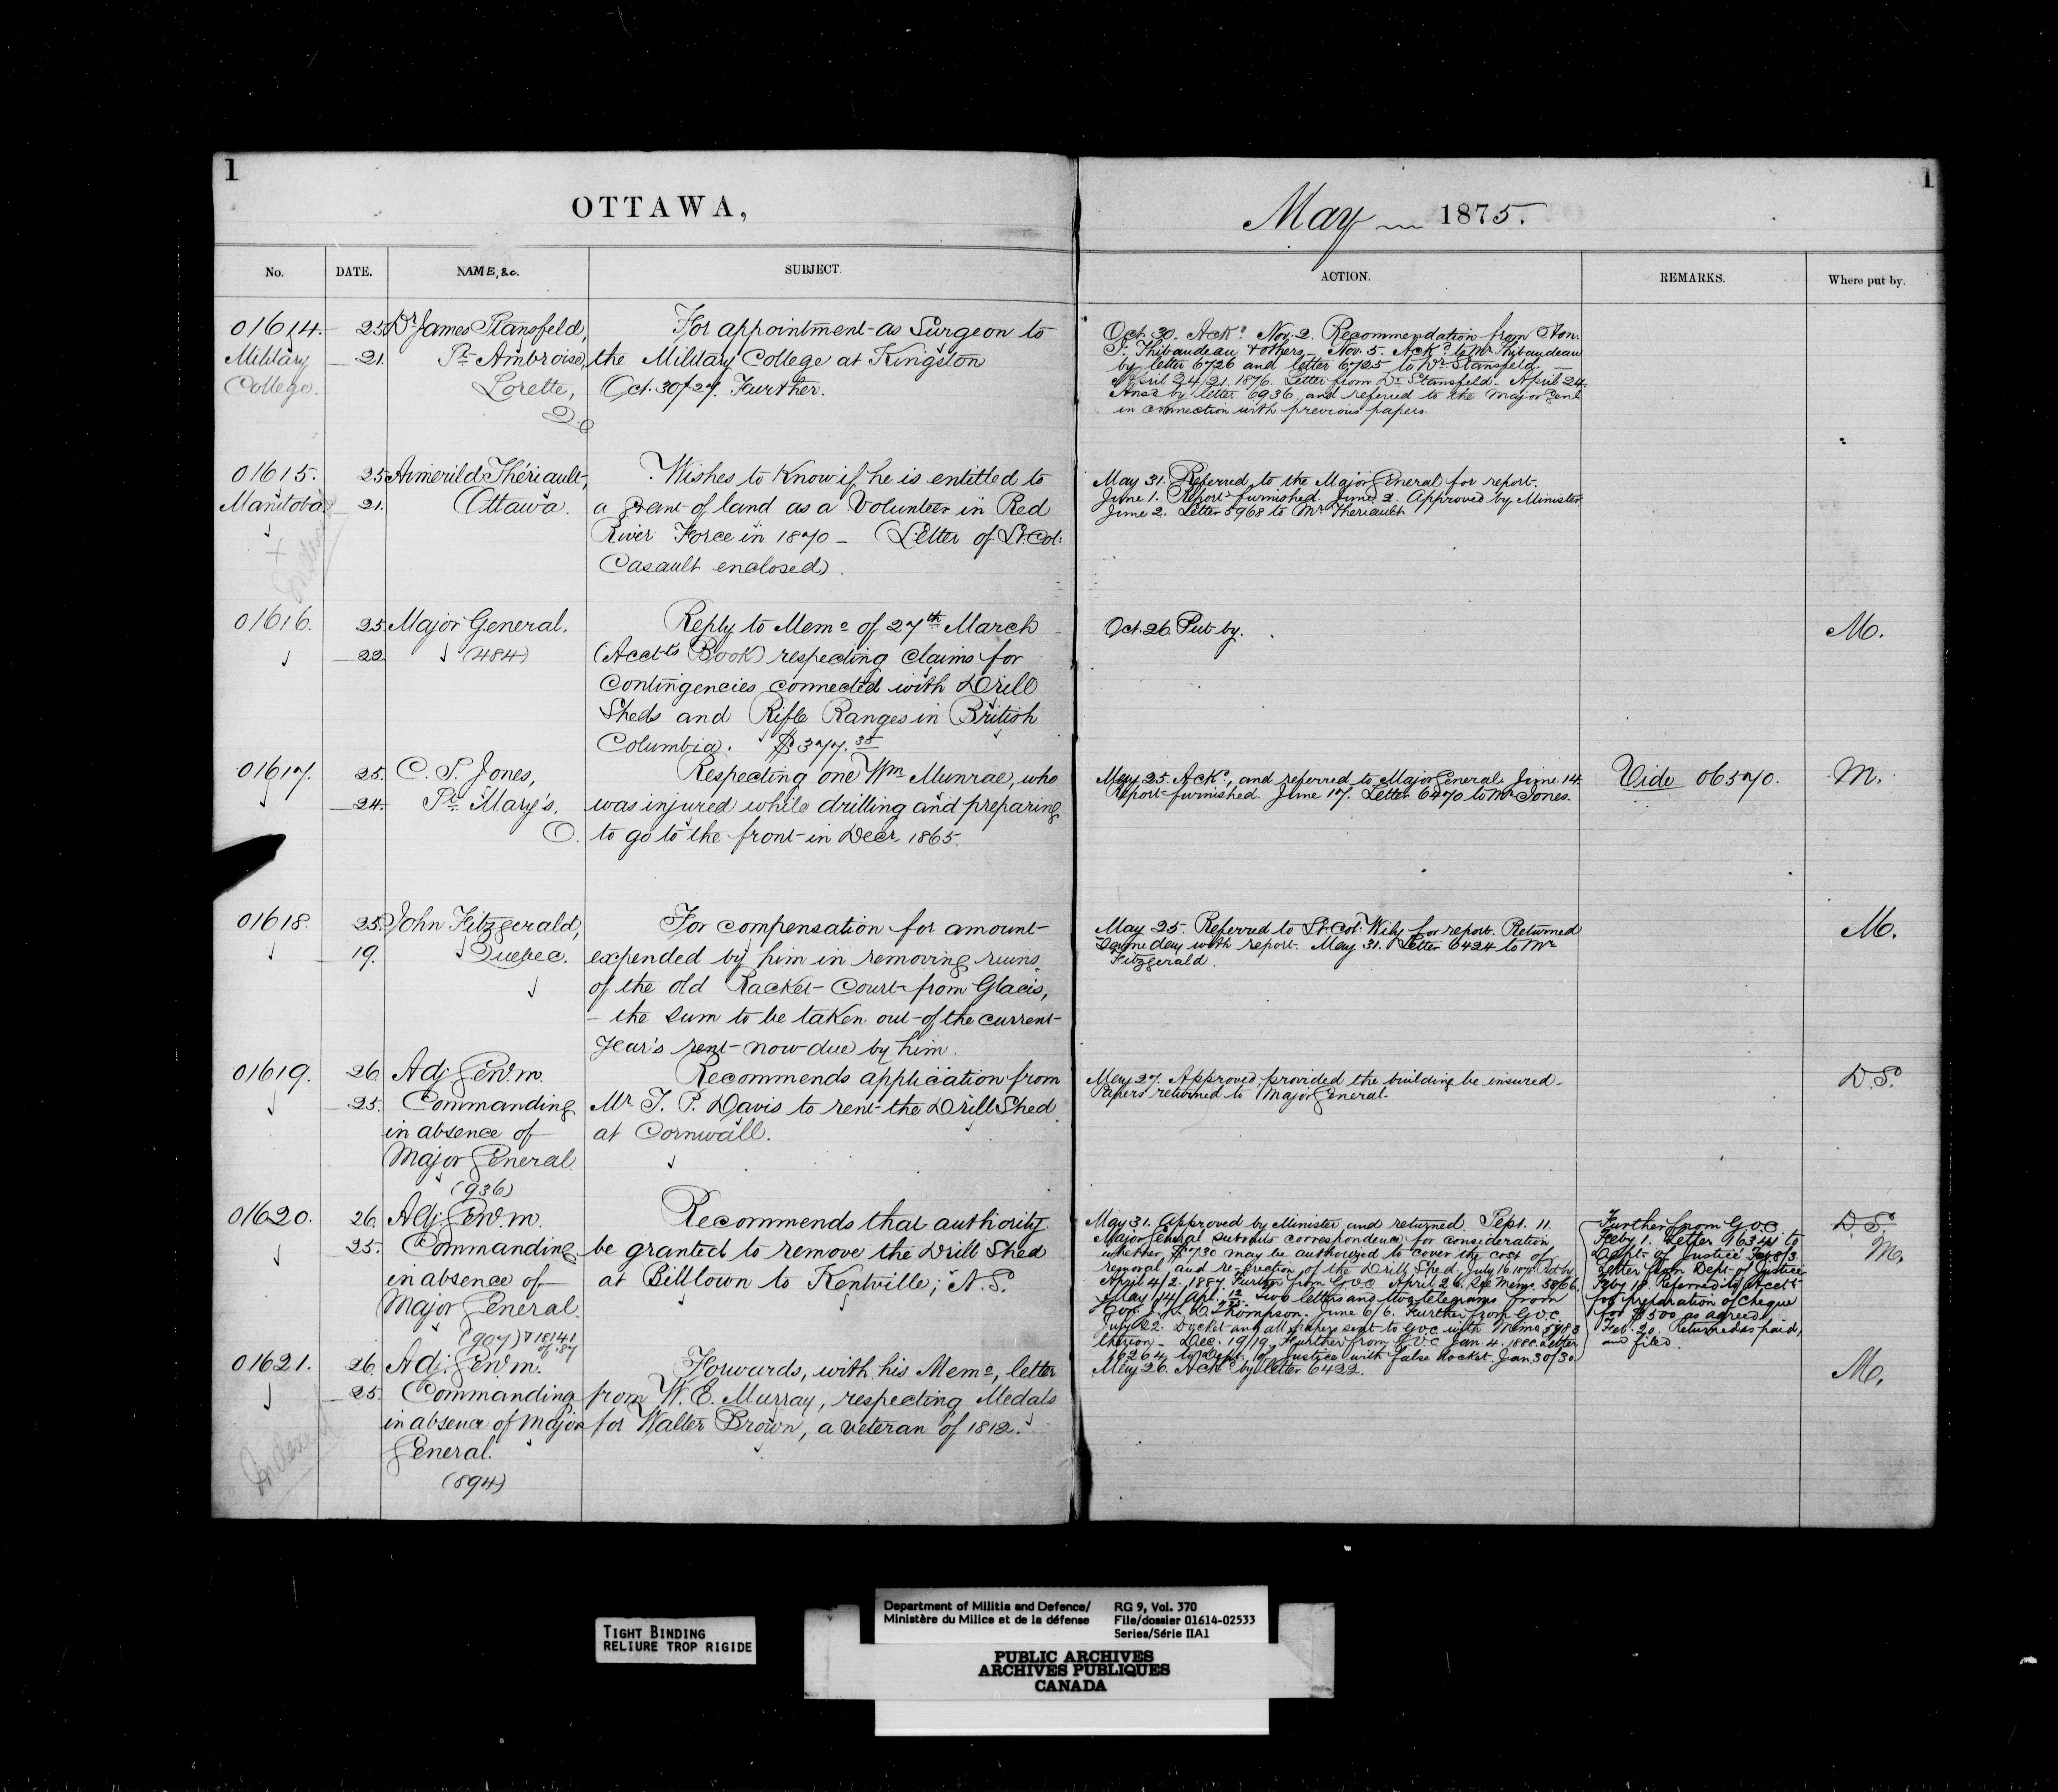 1
OTTAWA,
No. DATE. NAME, &c. SUBJECT.
01614. 25. Dr. James Stansfeld, For appointment as Surgeon to
Military 21. St. Ambroise, the Military College at Kingston
College. Lorette, Oct. 30/27. Further.
Q.
01615. 25. Thériault, Wishes to know if he is entitled to
Manitoba 21. Ottawa. a grant of land as a Volunteer in Red
River Force in 1870 — (Letter of Lt. Col:
Casault enclosed).
01616. 25. Major General. Reply to Memo of 27th March
22. (484) (Acct's Book) respecting claims for
Contingencies connected with Drill
Sheds and Rifle Ranges in British
Columbia. $377.38
01617. 25. C. S. Jones, Respecting one Wm Munrae, who
24. St. Mary's. was injured while drilling and preparing
O. to go to the front in Decr 1865.
01618. 25. John Fitzgerald, For compensation for amount
19. Quebec. expended by him in removing ruins
of the old Racket Court from Glacis,
– the sum to be taken out of the current
year's rent now due by him.
01619. 26. Adj. Genl. m. Recommends application from
25. Commanding Mr. T. P. Davis to rent the Drill Shed
in absence of at Cornwall.
Major General.
(936)
01620. 26. Adj. Genl. m. Recommends that authority
25. Commanding be granted to remove the Drill Shed
in absence of at Billtown to Kentville, N.S.
Major General.
(907) & 18141
of '87
01621. 26. Adj. Genl. m. Forwards, with his Memo, letter
25. Commanding from W. E. Murray, respecting Medals
in absence of Major for Walter Brown, a veteran of 1812.
General.
(894)
Indexed
1
May 1875.
ACTION. REMARKS. Where put by.
Oct. 30. Ackd. Nov. 2. Recommendation from Hon.
J. Thibaudeau & others. Nov. 5. Ackd. to Mr Thibaudeau
by letter 6726 and letter 6725 to Dr Stansfeld. —
April 24/21. 1876. Letter from Dr Stansfeld. April 24.
Ansd by letter 6936, and referred to the Major Genl
in connection with previous papers.
May 31. Referred to the Major General for report.
June 1. Report furnished. June 2. Approved by Minister.
June 2. Letter 5968 to Mr Theriault
Oct. 26. Put by. M.
May 25. Ackd, and referred to Major General. June 14. Vide 06570. M.
Report furnished. June 17. Letter 6470 to Mr Jones.
May 25. Referred to Lt. Col. Wily for report. Returned M.
same day with report. May 31. Letter 6424 to Mr
Fitzgerald.
May 27. Approved, provided the building be insured. D.S.
Papers returned to Major General.
May 31. Approved by Minister and returned. Sept. 11.
Major General submits correspondence, for consideration
whether $730 may be authorized to cover the cost of
removal, and re-erection of the Drill Shed. July 16. Put by
April 4/2. 1887. Further from G.O.C. April 26. See Memo. 5866.
May 14/Apl. Two letters and two telegrams from
Hon. J. S. D. Thompson. June 6/6. Further from G.O.C.
July 22. Docket and all papers sent to G.O.C. with Memo 5983
thereon. Dec. 19/19. Further from G.O.C. Jan. 4. 1888. Letter
16264 to Dept. of Justice with false docket. Jan 30/30
Further from G.O.C.
Feby 1. Letter 16344 to
Dept. of Justice. Feb 8/3.
Letter from Dept. of Justice
Feby 18. Referred to Acct.
for preparation of cheque
for $500 as agreed
Feb. 20. Returned as paid,
and filed.
D.S.
M.
May 26. Ackd by letter 6422. M.
TIGHT BINDING
RELIURE TROP RIGIDE
Department of Militia and Defence/
Ministère du Milice et de la défense
RG 9, Vol. 370
File/dossier 01614-02533
Series/Série IIA1
PUBLIC ARCHIVES
ARCHIVES PUBLIQUES
CANADA